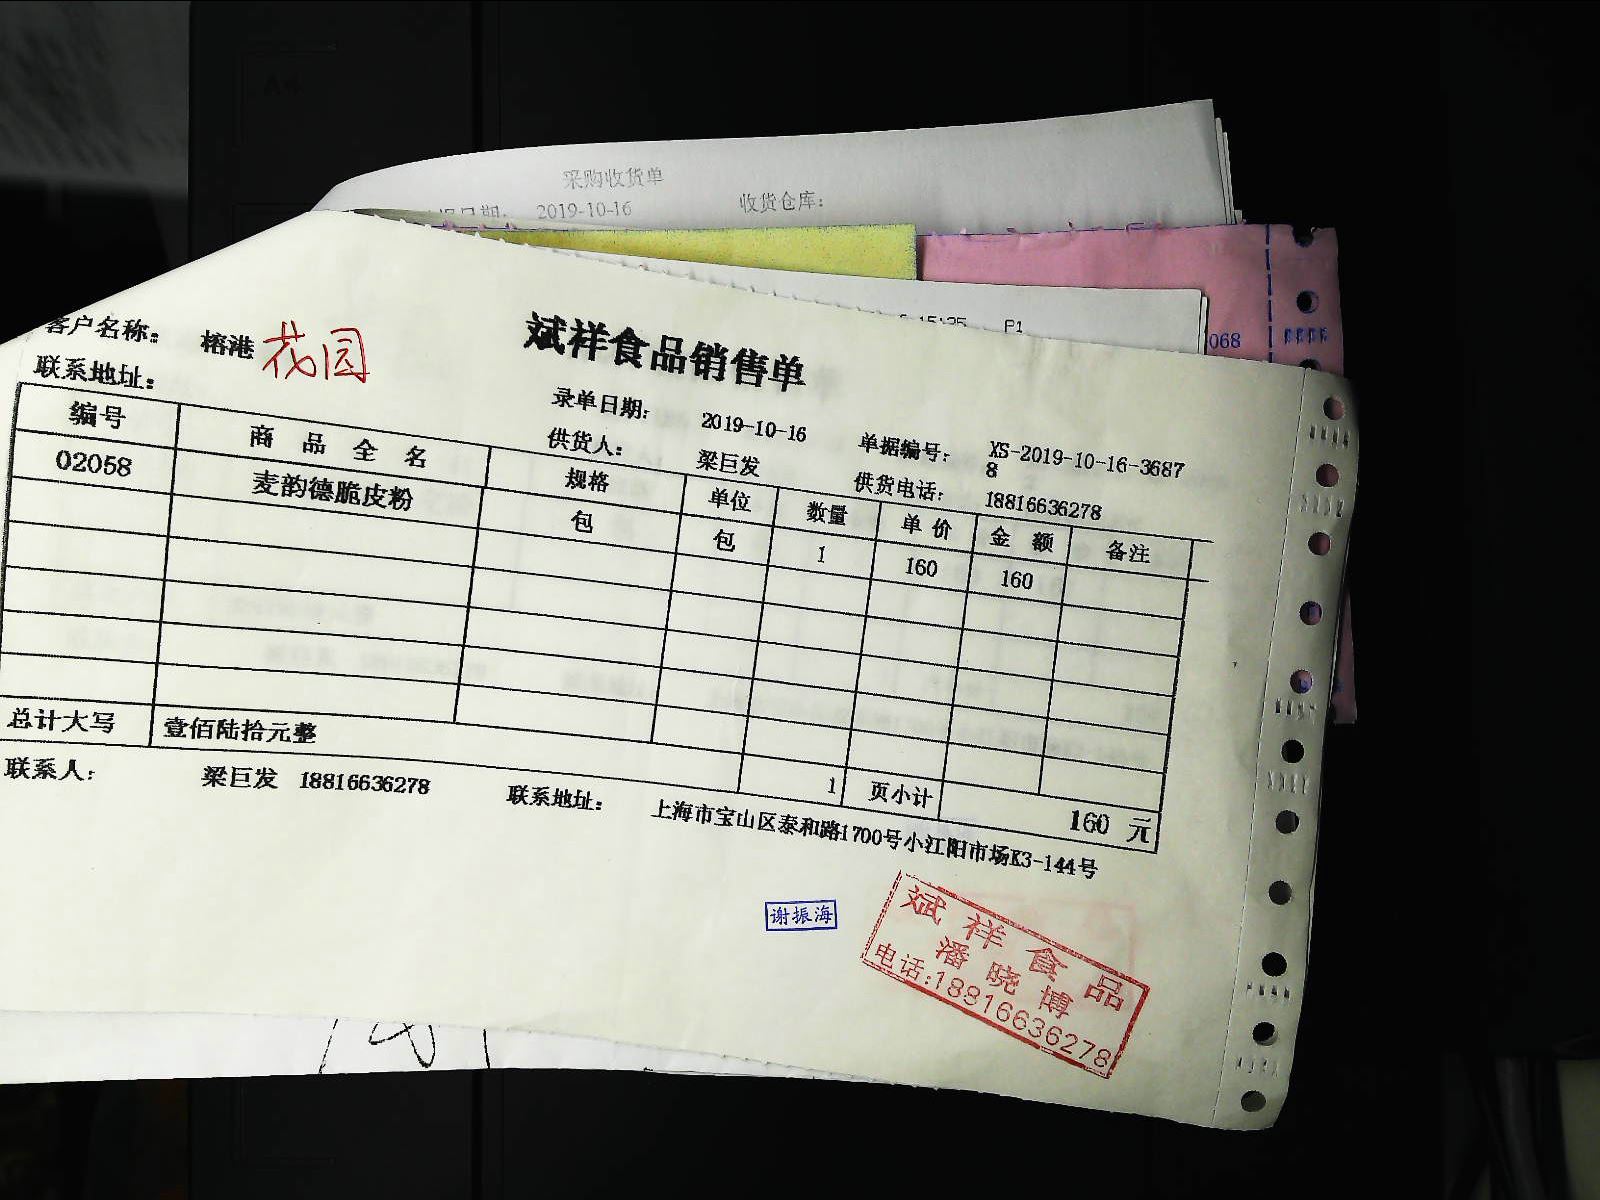 采购收货单
2019-10-16 收货仓库:
15:25 P1
068
斌祥食品销售单
客户名称: 榕港 花园
联系地址:
录单日期: 2019-10-16 单据编号: XS-2019-10-16-3687
8
供货人: 梁巨发 供货电话: 18816636278
编号 商品全名 规格 单位 数量 单价 金额 备注
02058 麦韵德脆皮粉 包 包 1 160 160
总计大写 壹佰陆拾元整
1 页小计 160 元
联系人: 梁巨发 18816636278 联系地址: 上海市宝山区泰和路1700号小江阳市场K3-144号
谢振海
斌祥食品
潘晓博
电话:18816636278